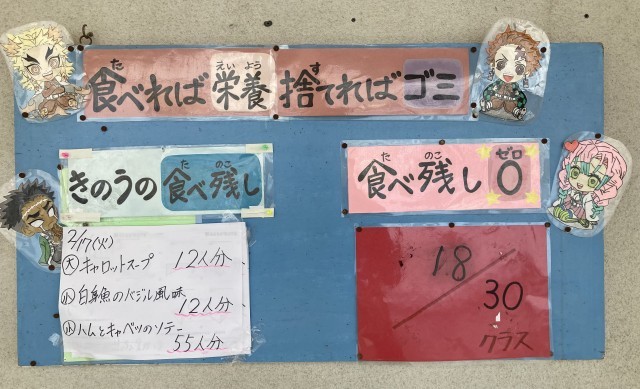 食べれば栄養 捨てればゴミ
きのうの食べ残し
2/17(火)
大 キャロットスープ 12人分
小 白身魚のバジル風味 12人分
小 ハムとキャベツのソテー 55人分
食べ残し0
18/30
クラス